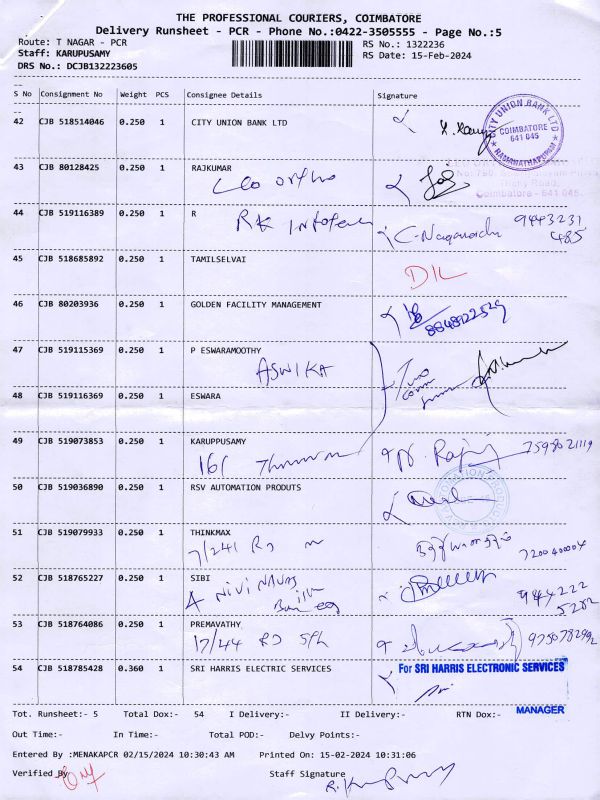 THE PROFESSIONAL COURIERS, COIMBATORE
Delivery Runsheet - PCR - Phone No.:0422-3505555 - Page No.:5
Route: T NAGAR - PCR
RS No.: 1322236
Staff: KARUPUSAMY
RS Date: 15-Feb-2024
DRS No.: DCJB132223605
S No Consignment No Weight PCS Consignee Details Signature
42 CJB 518514046 0.250 1 CITY UNION BANK LTD
CITY UNION BANK LTD
COIMBATORE
641 045
RAMANATHAPURAM
43 CJB 80128425 0.250 1 RAJKUMAR
Leo ortho
Trichy Road,
Coimbatore - 641 045.
44 CJB 519116389 0.250 1 R
RK Infotech
C. Nagarach
9443231
485
45 CJB 518685892 0.250 1 TAMILSELVAI
DIL
46 CJB 80203936 0.250 1 GOLDEN FACILITY MANAGEMENT
8848922529
47 CJB 519115369 0.250 1 P ESWARAMOOTHY
ASWIKA
Two
48 CJB 519116369 0.250 1 ESWARA
49 CJB 519073853 0.250 1 KARUPPUSAMY
161
7598021119
50 CJB 519036890 0.250 1 RSV AUTOMATION PRODUTS
51 CJB 519079933 0.250 1 THINKMAX
7/241 RD
7200400004
52 CJB 518765227 0.250 1 SIBI
A NIVI NAVAS
944222
5202
53 CJB 518764086 0.250 1 PREMAVATHY
17/44 RD
54 CJB 518785428 0.360 1 SRI HARRIS ELECTRIC SERVICES
For SRI HARRIS ELECTRONIC SERVICES
MANAGER
Tot. Runsheet:- 5 Total Dox:- 54 I Delivery:- II Delivery:- RTN Dox:-
Out Time:- In Time:- Total POD:- Delvy Points:-
Entered By :MENAKAPCR 02/15/2024 10:30:43 AM Printed On: 15-02-2024 10:31:06
Verified By
Staff Signature